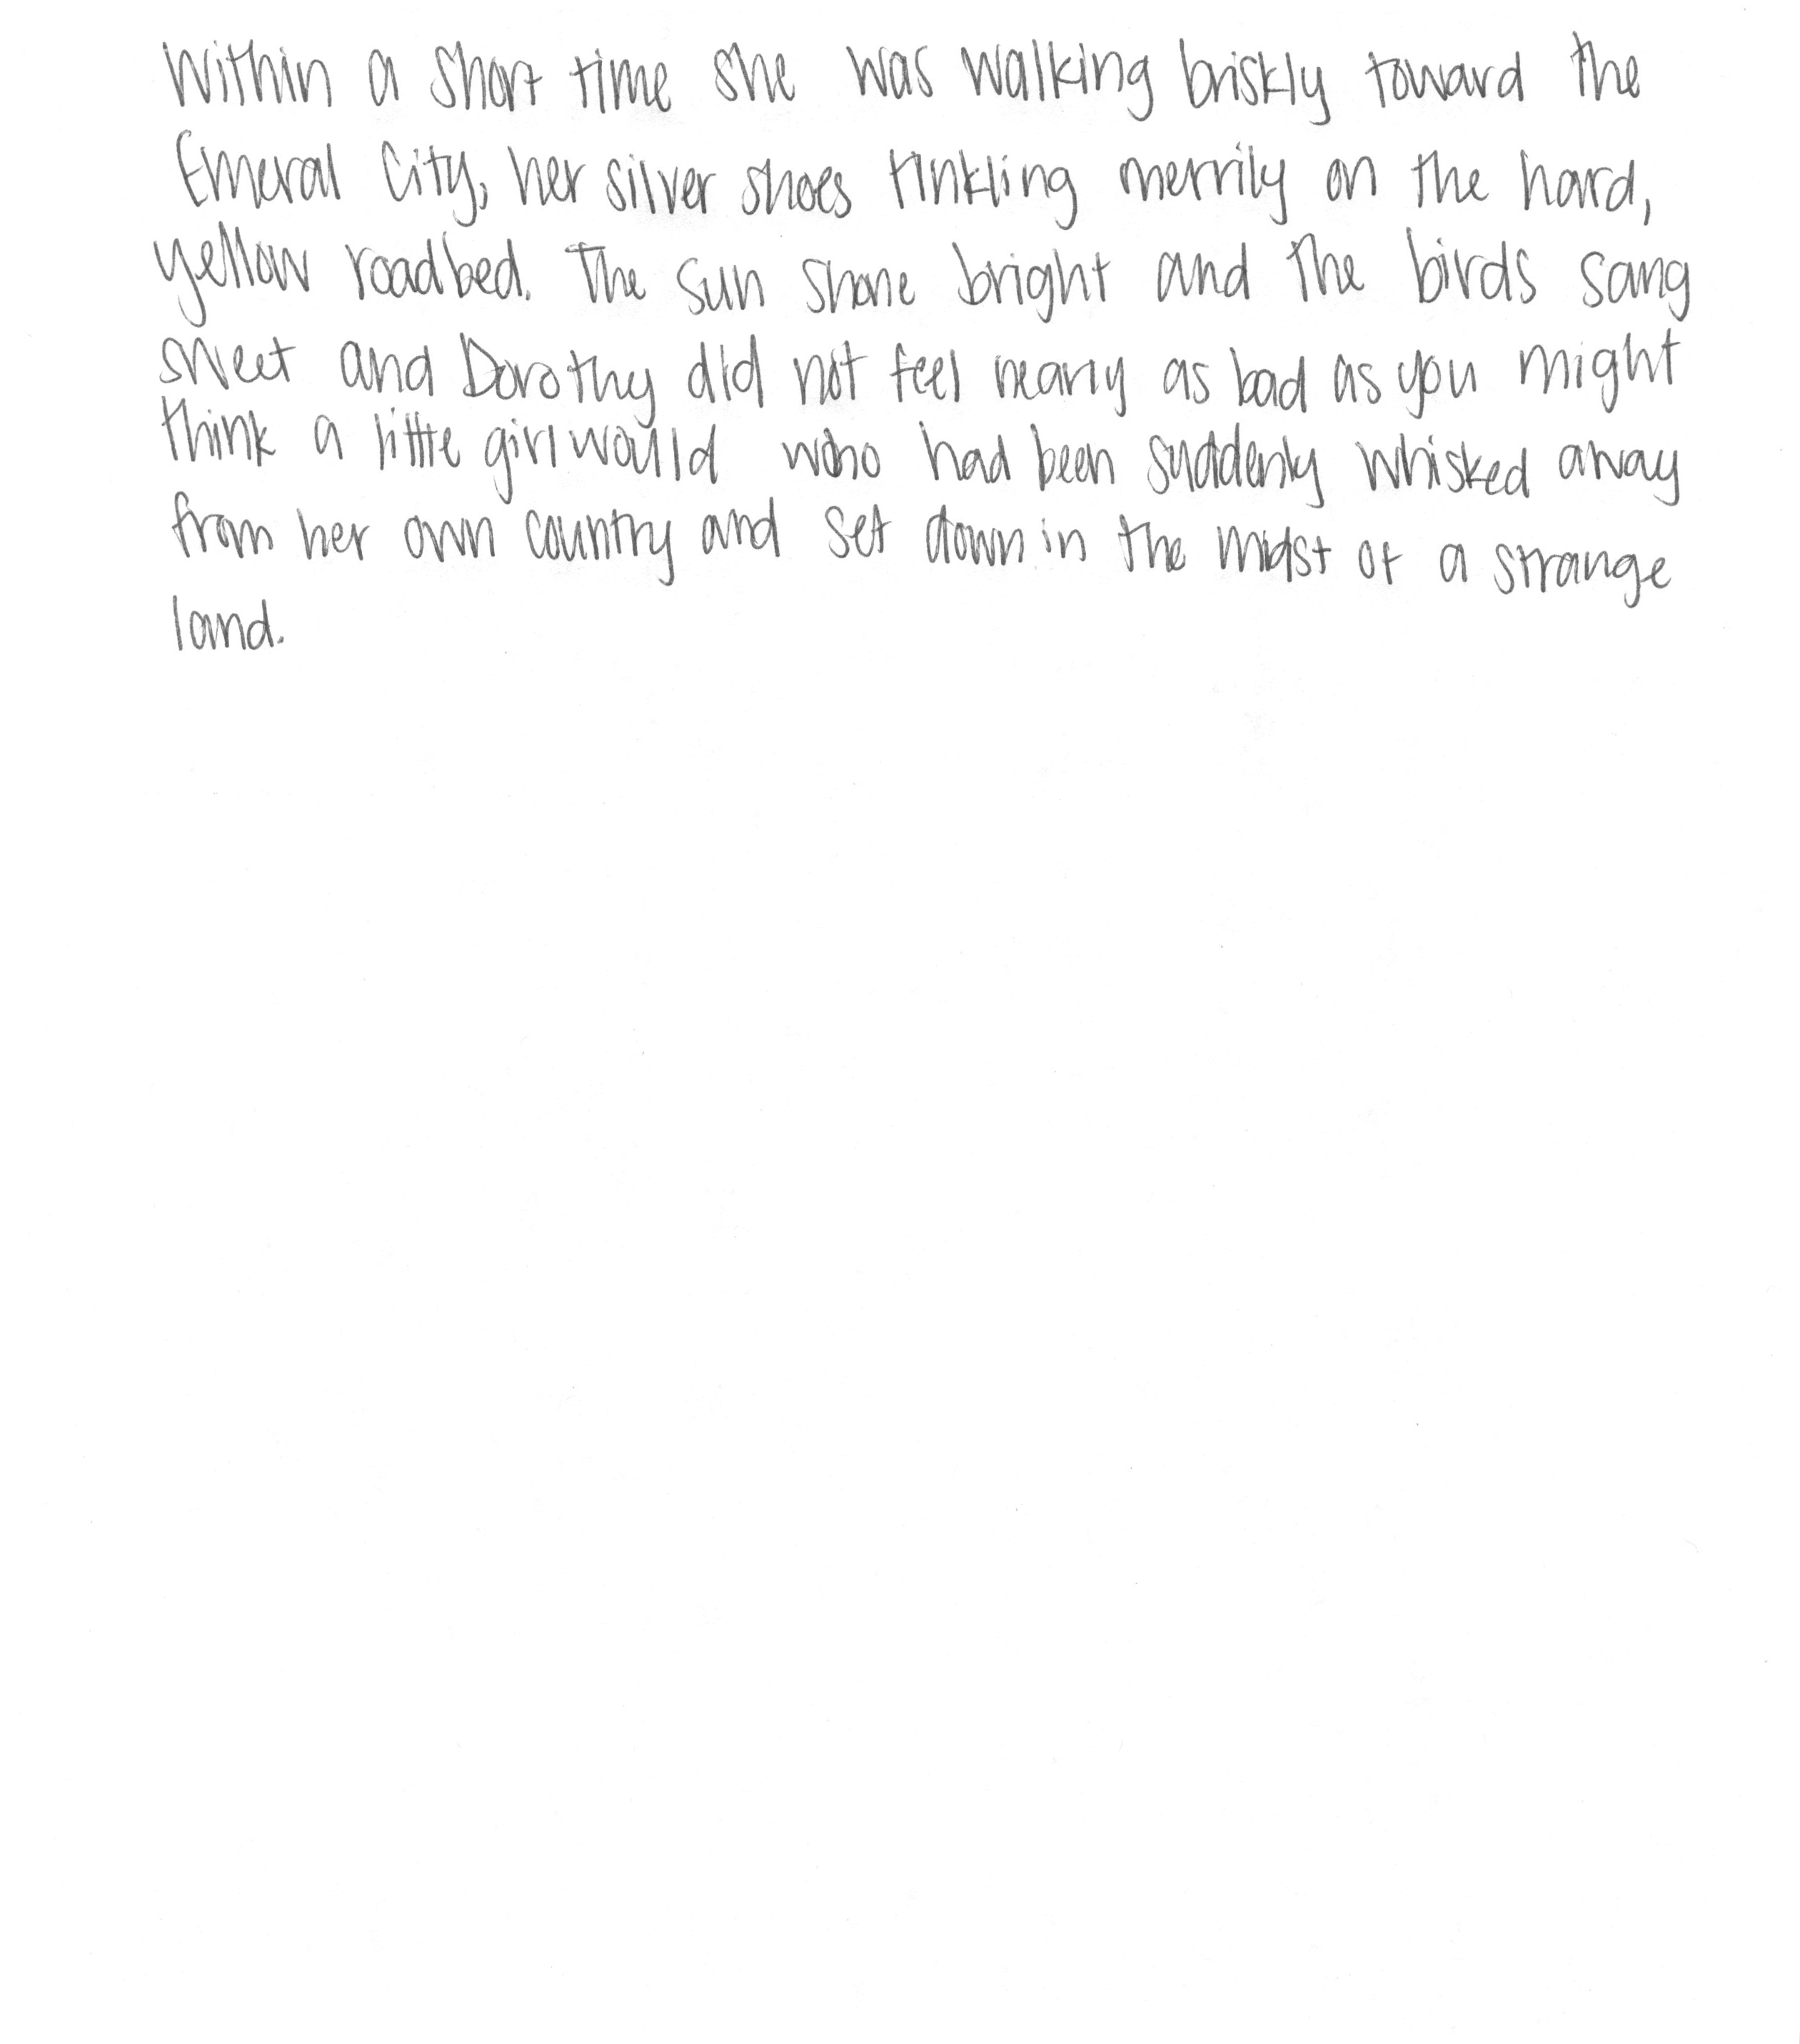 Within a short time she was walking briskly toward the
Emeral City, her silver shoes tinkling merrily on the hard,
yellow roadbed. The sun shone bright and the birds sang
sweet and Dorothy did not feel nearly as bad as you might
think a little girl would who had been suddenly whisked away
from her own country and set down in the midst of a strange
land.